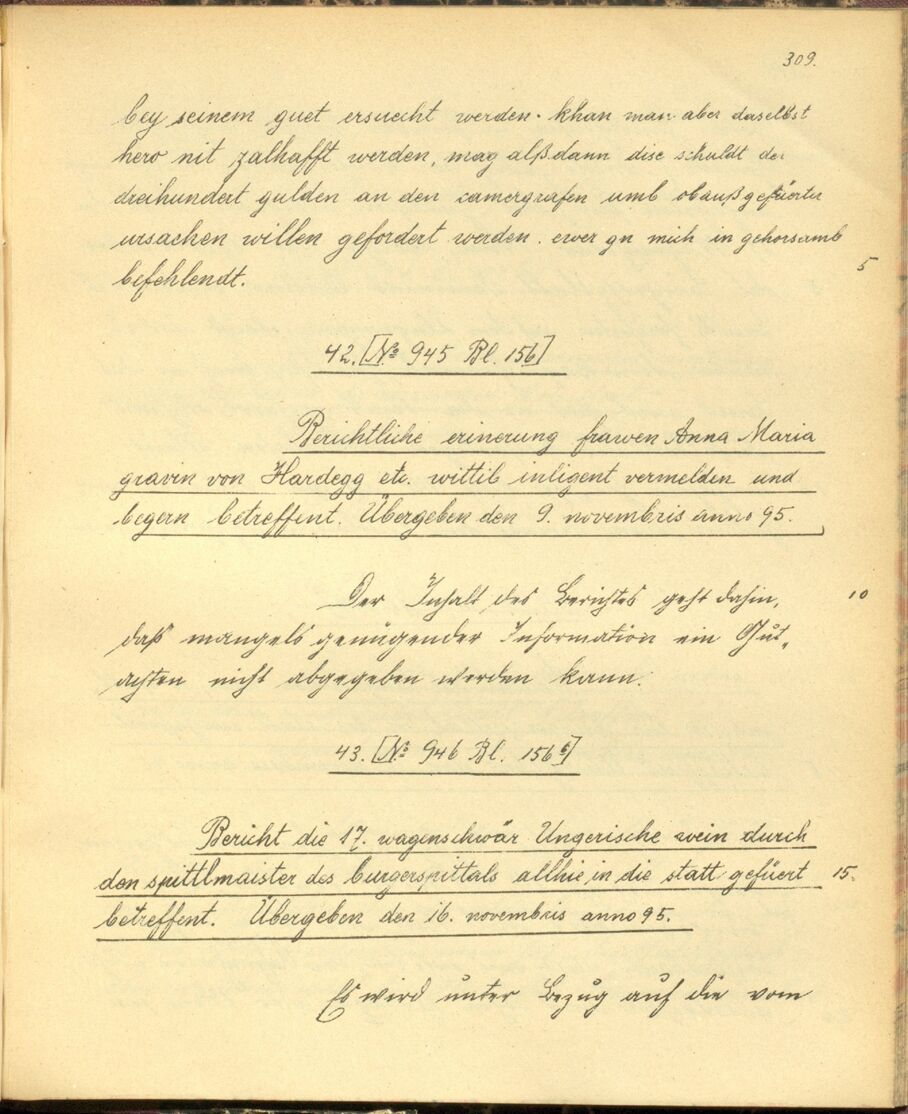 309.
bey seinem guet ersuecht werden. khan man aber daselbst
hero nit zalhafft werden, mag alßdann dise schuldt der
dreihundert gulden an den camergrafen umb obaußgefüerter
ursachen willen gefordert werden. ewer gn mich in gehorsamb
5
befehlendt.
42. [No 945 Bl. 156]
Berichtliche erinerung frawen Anna Maria
gravin von Hardegg etc. wittib inligent vermelden und
begern betreffent. Übergeben den 9. novembris anno 95.
Der Inhalt des Berichtes geht dahin, 10
daß mangels genügender Information ein Gut„
achten nicht abgegeben werden kann.
43. [No 946 Bl. 156b]
Bericht die 17. wagenschwär Ungerische wein durch
den spittlmaister des burgerspittals allhie in die statt gefüert 15.
betreffent. Übergeben den 16. novembris anno 95.
Es wird unter Bezug auf die vom